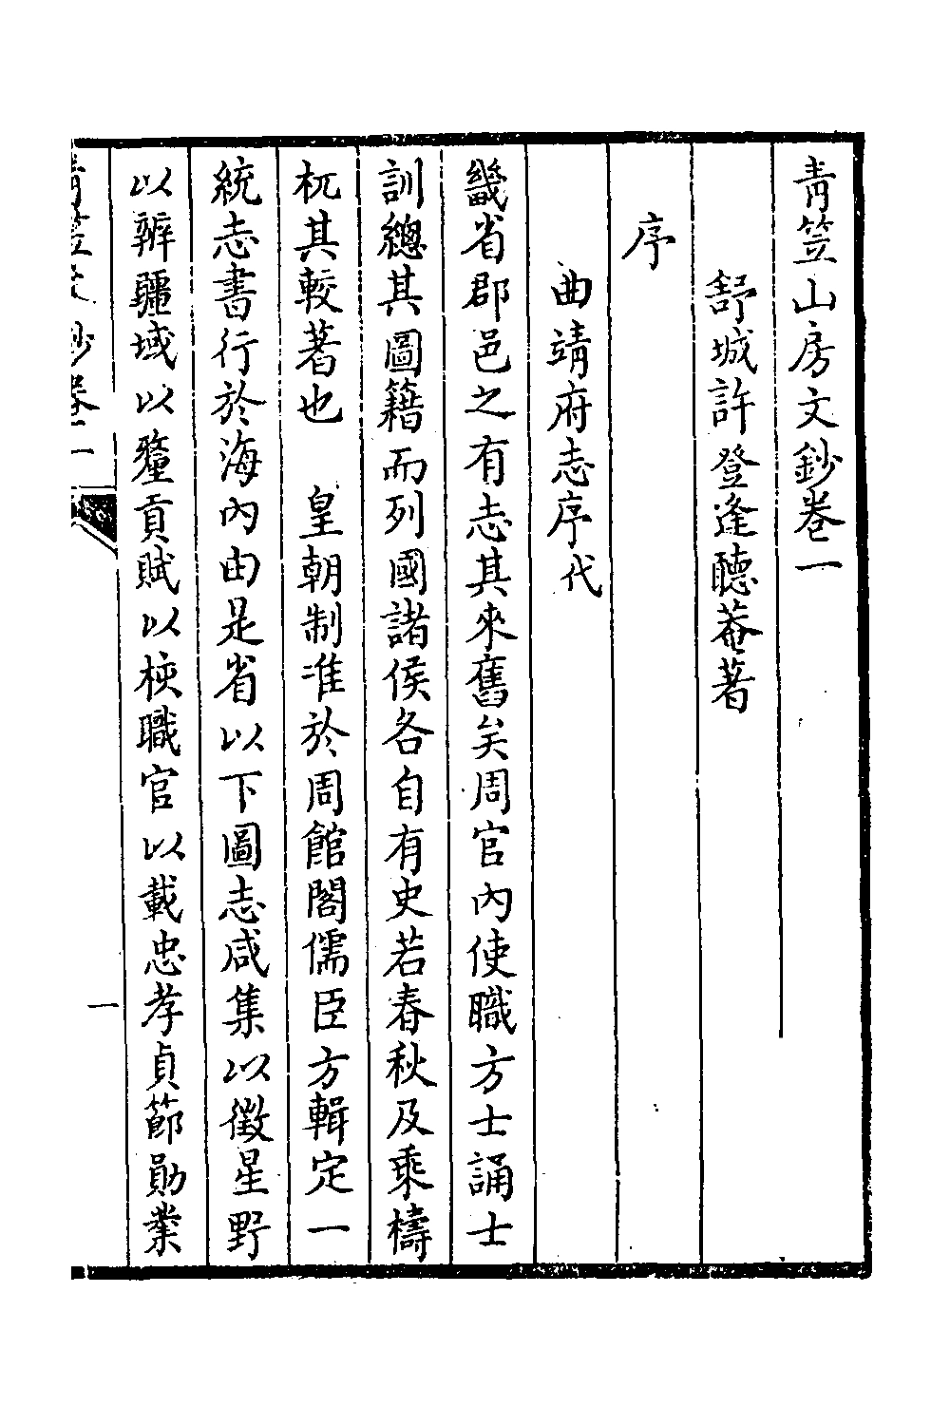 青笠山房文鈔卷一
舒城許登逢聽菴著
序
曲靖府志序代
畿省郡邑之有志其來舊矣周官內使職方士誦士
訓總其圖籍而列國諸侯各自有史若春秋及乘檮
杌其較著也　皇朝制准於周館閣儒臣方輯定一
統志書行於海內由是省以下圖志咸集以徵星野
以辨疆域以釐貢賦以核職官以載忠孝貞節勛業
青笠文鈔卷一
一